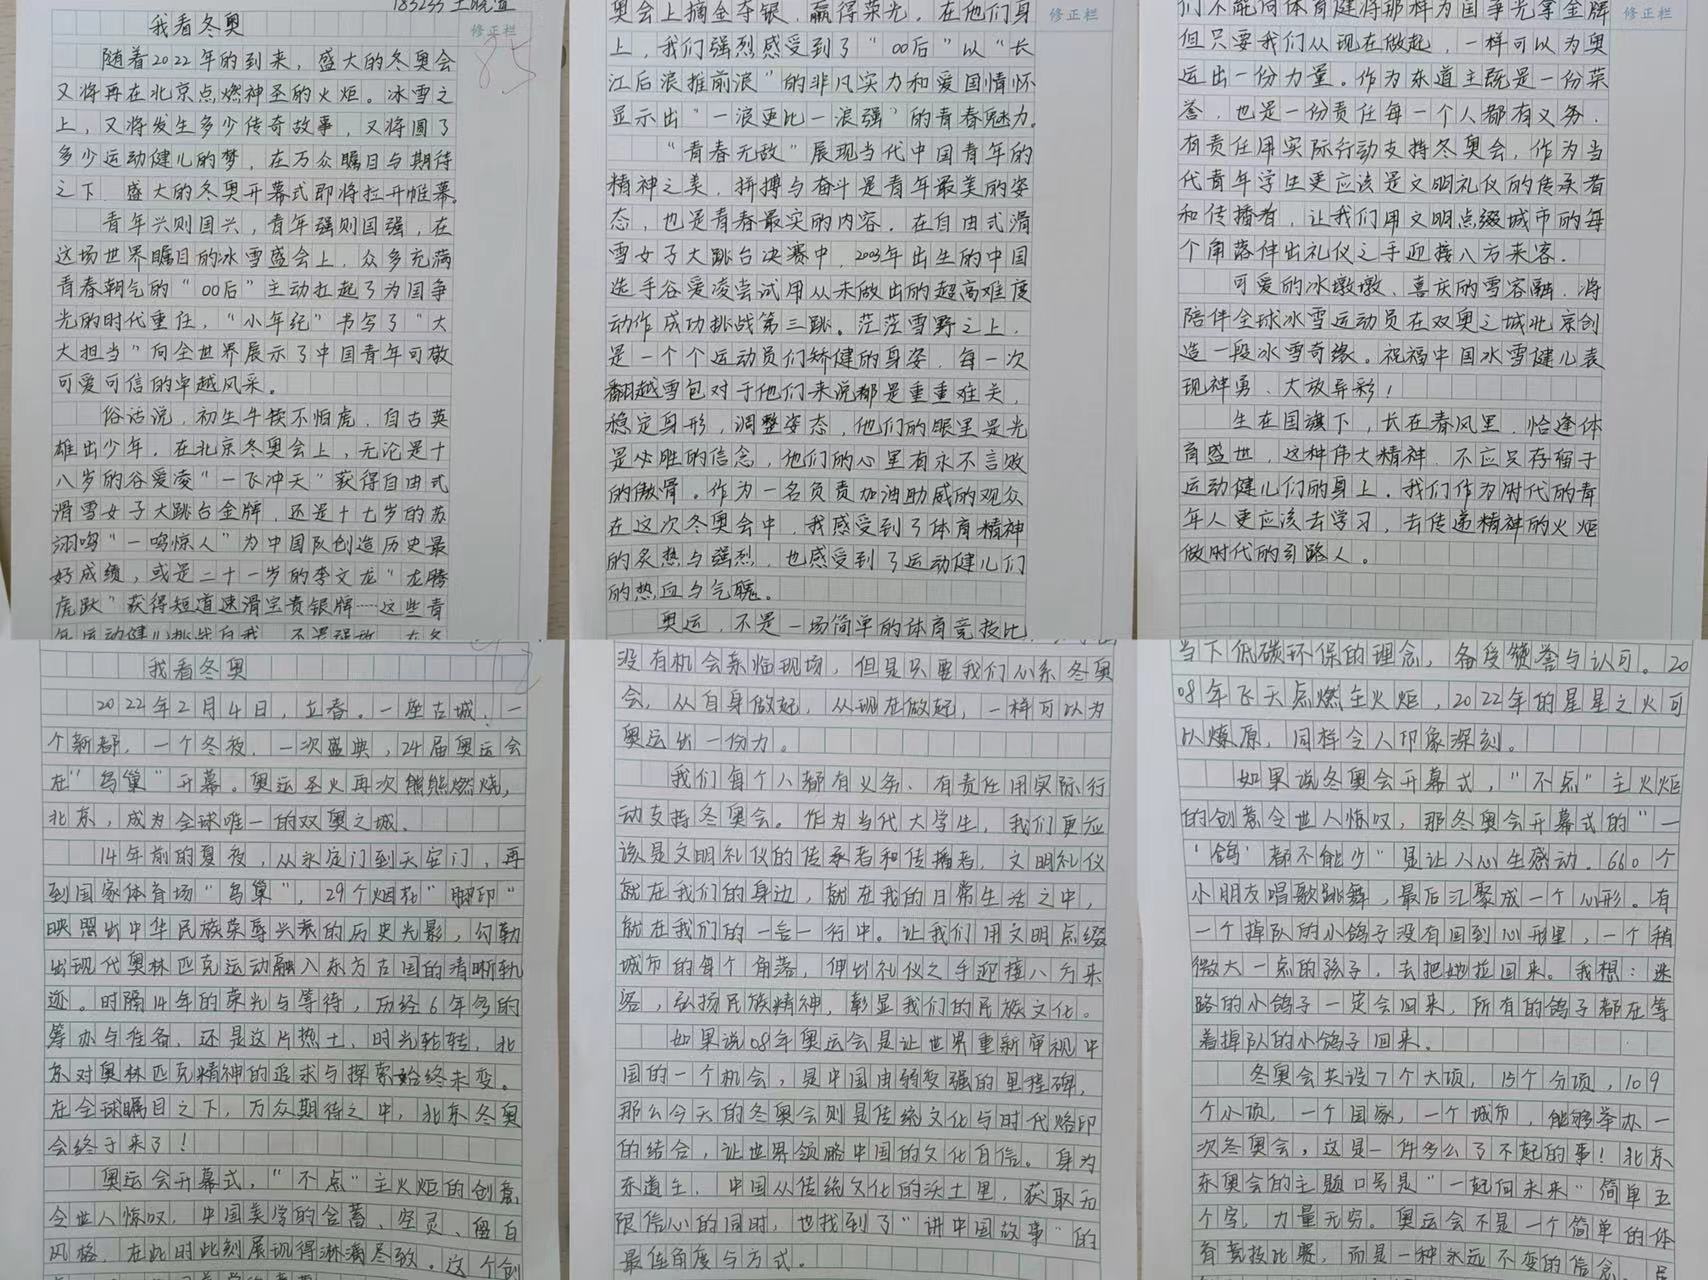 我看冬奥
修正栏
85
随着2022年的到来，盛大的冬奥会
又将再在北京点燃神圣的火炬。冰雪之
上，又将发生多少传奇故事，又将圆了
多少运动健儿的梦，在万众瞩目与期待
之下，盛大的冬奥开幕式即将拉开帷幕。
青年兴则国兴，青年强则国强，在
这场世界瞩目的冰雪盛会上，众多充满
青春朝气的“00后”主动扛起了为国争
光的时代重任，“小年纪”书写了“大
大担当”向全世界展示了中国青年可敬
可爱可信的卓越风采。
俗话说，初生牛犊不怕虎，自古英
雄出少年，在北京冬奥会上，无论是十
八岁的谷爱凌“一飞冲天”获得自由式
滑雪女子大跳台金牌，还是十七岁的苏
翊鸣“一鸣惊人”为中国队创造历史最
好成绩，或是二十一岁的李文龙“龙腾
虎跃”获得短道速滑宝贵银牌……这些青
年运动健儿挑战自我，不畏强敌，在冬
奥会上摘金夺银，赢得荣光，在他们身
修正栏
上，我们强烈感受到了“00后”以“长
江后浪推前浪”的非凡实力和爱国情怀
显示出“一浪更比一浪强”的青春魅力。
“青春无敌”展现当代中国青年的
精神之美，拼搏与奋斗是青年最美的姿
态，也是青春最实的内容，在自由式滑
雪女子大跳台决赛中，2003年出生的中国
选手谷爱凌尝试用从未做出的超高难度
动作成功挑战第三跳。茫茫雪野之上，
是一个个运动员们矫健的身姿，每一次
翻越雪包对于他们来说都是重重难关，
稳定身形，调整姿态，他们的眼里是光
是必胜的信念，他们的心里有永不言败
的傲骨。作为一名负责加油助威的观众
在这次冬奥会中，我感受到了体育精神
的炙热与强烈，也感受到了运动健儿们
的热血与气魄。
奥运，不是一场简单的体育竞技比
们不能向体育健将那样为国争光拿金牌
修正栏
但只要我们从现在做起，一样可以为奥
运出一份力量。作为东道主既是一份荣
誉，也是一份责任每一个人都有义务，
有责任用实际行动支持冬奥会，作为当
代青年学生更应该是文明礼仪的传承者
和传播者，让我们用文明点缀城市的每
个角落伸出礼仪之手迎接八方来客．
可爱的冰墩墩、喜庆的雪容融，将
陪伴全球冰雪运动员在双奥之城北京创
造一段冰雪奇缘。祝福中国冰雪健儿表
现神勇、大放异彩！
生在国旗下，长在春风里，恰逢体
育盛世，这种伟大精神，不应只存留于
运动健儿们的身上，我们作为时代的青
年人更应该去学习，去传递精神的火炬
做时代的引路人。
我看冬奥
2022年2月4日，立春。一座古城，一
个新都，一个冬夜，一次盛典，24届奥运会
在“鸟巢”开幕。奥运圣火再次熊熊燃烧，
北京，成为全球唯一的双奥之城．
14年前的夏夜，从永定门到天安门，再
到国家体育场“鸟巢”，29个烟花“脚印”
映照出中华民族荣辱兴衰的历史光影，勾勒
出现代奥林匹克运动融入东方古国的清晰轨
迹。时隔14年的荣光与等待，历经6年多的
筹办与准备，还是这片热土，时光轮转，北
京对奥林匹克精神的追求与探索始终未变。
在全球瞩目之下，万众期待之中，北京冬奥
会终于来了！
奥运会开幕式，“不点”主火炬的创意
令世人惊叹，中国美学的含蓄、空灵、留白
风格，在此时此刻展现得淋漓尽致。这个创
没有机会亲临现场，但是只要我们心系冬奥
会，从自身做起，从现在做起，一样可以为
奥运出一份力。
我们每个人都有义务、有责任用实际行
动支持冬奥会。作为当代大学生，我们更应
该是文明礼仪的传承者和传播者，文明礼仪
就在我们的身边，就在我的日常生活之中，
就在我们的一言一行中。让我们用文明点缀
城市的每个角落，伸出礼仪之手迎接八方来
客，弘扬民族精神，彰显我们的民族文化。
如果说08年奥运会是让世界重新审视中
国的一个机会，是中国由弱变强的里程碑，
那么今天的冬奥会则是传统文化与时代烙印
的结合，让世界领略中国的文化自信。身为
东道主，中国从传统文化的沃土里，获取无
限信心的同时，也找到了“讲中国故事”的
最佳角度与方式。
当下低碳环保的理念，备受赞誉与认可。20
08年飞天点燃主火炬，2022年的星星之火可
以燎原，同样令人印象深刻。
如果说冬奥会开幕式，“不点”主火炬
的创意令世人惊叹，那冬奥会开幕式的“一
‘鸽’都不能少”是让人心生感动．660个
小朋友唱歌跳舞，最后汇聚成一个心形。有
一个掉队的小鸽子没有回到心形里，一个稍
微大一点的孩子，去把她拉回来。我想：迷
路的小鸽子一定会回来，所有的鸽子都在等
着掉队的小鸽子回来．
冬奥会共设7个大项，15个分项，109
个小项，一个国家，一个城市，能够举办一
次冬奥会，这是一件多么了不起的事！北京
东奥会的主题口号是“一起向未来”简单五
个字，力量无穷。奥运会不是一个简单的体
育竞技比赛，而是一种永远不变的信念，